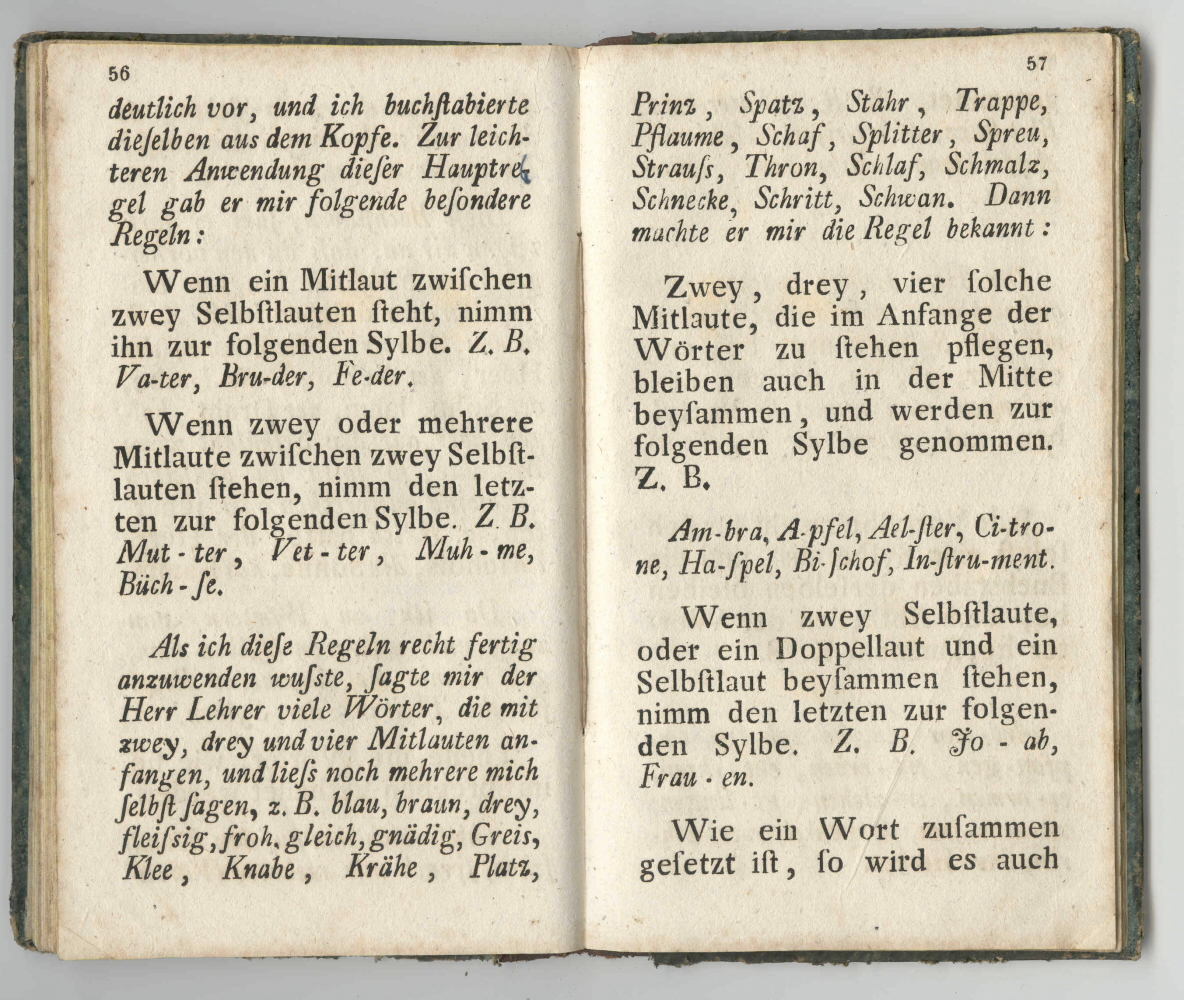 56
deutlich vor, und ich buchſtabierte
dieſelben aus dem Kopfe. Zur leich-
teren Anwendung dieſer Hauptre-
gel gab er mir folgende beſondere
Regeln:
Wenn ein Mitlaut zwiſchen
zwey Selbſtlauten ſteht, nimm
ihn zur folgenden Sylbe. Z. B.
Va-ter, Bru-der, Fe-der.
Wenn zwey oder mehrere
Mitlaute zwiſchen zwey Selbſt-
lauten ſtehen, nimm den letz-
ten zur folgenden Sylbe. Z. B.
Mut - ter, Vet - ter, Muh - me,
Büch - ſe.
Als ich dieſe Regeln recht fertig
anzuwenden wuſste, ſagte mir der
Herr Lehrer viele Wörter, die mit
zwey, drey und vier Mitlauten an-
fangen, und lieſs noch mehrere mich
ſelbſt ſagen, z. B. blau, braun, drey,
fleiſsig, froh, gleich, gnädig, Greis,
Klee, Knabe, Krähe, Platz,
57
Prinz, Spatz, Stahr, Trappe,
Pflaume, Schaf, Splitter, Spreu,
Strauſs, Thron, Schlaf, Schmalz,
Schnecke, Schritt, Schwan. Dann
machte er mir die Regel bekannt:
Zwey, drey, vier ſolche
Mitlaute, die im Anfange der
Wörter zu ſtehen pflegen,
bleiben auch in der Mitte
beyſammen, und werden zur
folgenden Sylbe genommen.
Z. B.
Am-bra, A-pfel, Ael-ſter, Ci-tro-
ne, Ha-ſpel, Bi-ſchof, In-ſtru-ment.
Wenn zwey Selbſtlaute,
oder ein Doppellaut und ein
Selbſtlaut beyſammen ſtehen,
nimm den letzten zur folgen-
den Sylbe. Z. B. Jo - ab,
Frau - en.
Wie ein Wort zuſammen
geſetzt iſt, ſo wird es auch